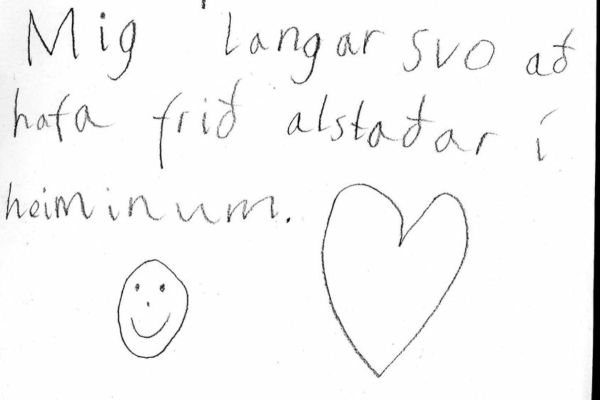 Mig langar svo að
hafa frið alstaðar í
heiminum.